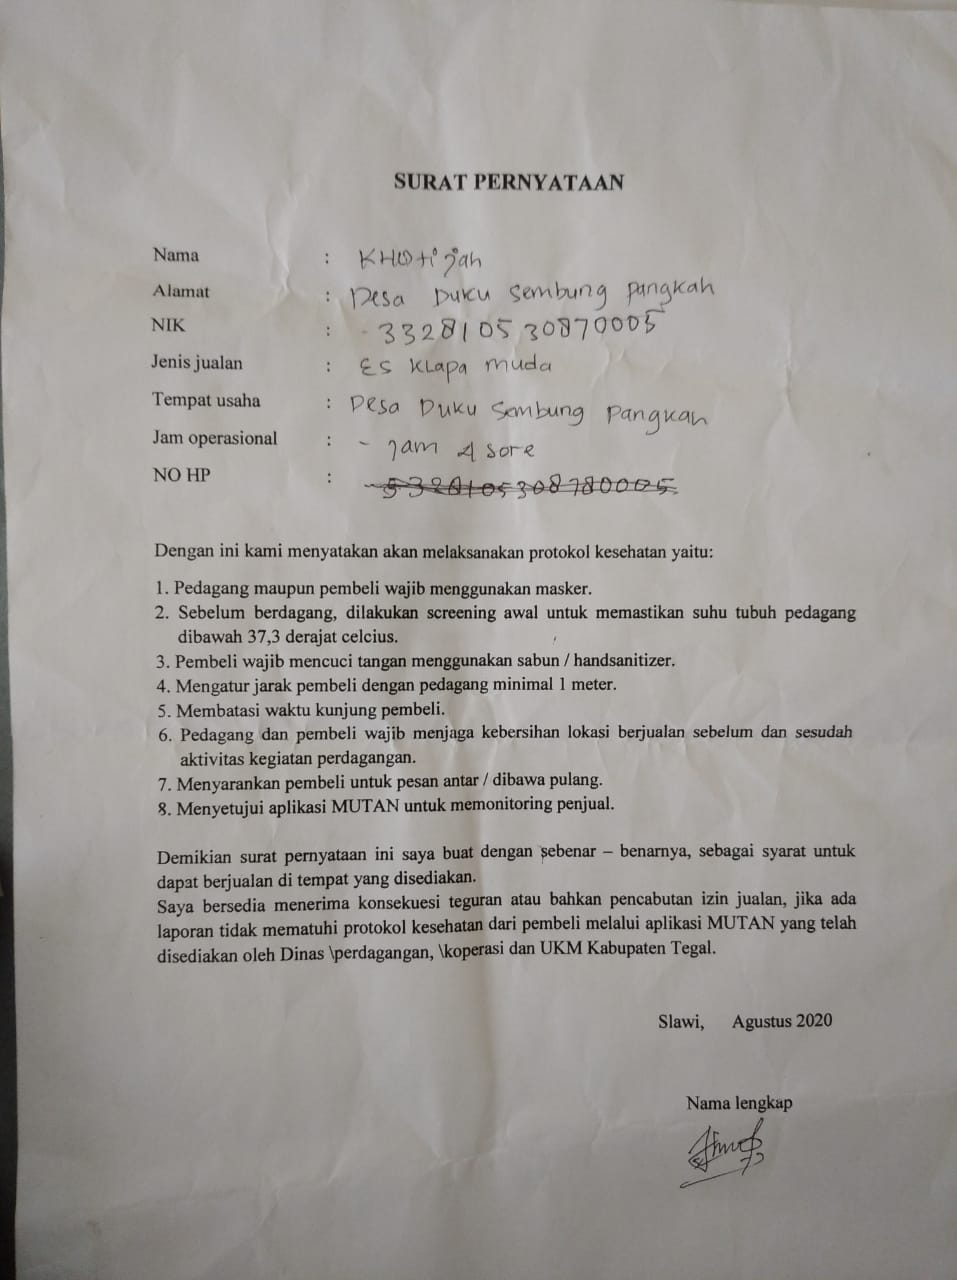 SURAT PERNYATAAN
Nama : KHOtijah
Alamat : Desa Duku sembung pangkah
NIK : - 332810530870005
Jenis jualan : ES KLapa muda
Tempat usaha : Desa Duku Sembung Pangkah
Jam operasional : - jam 4 sore
NO HP :
Dengan ini kami menyatakan akan melaksanakan protokol kesehatan yaitu:
1. Pedagang maupun pembeli wajib menggunakan masker.
2. Sebelum berdagang, dilakukan screening awal untuk memastikan suhu tubuh pedagang
dibawah 37,3 derajat celcius.
3. Pembeli wajib mencuci tangan menggunakan sabun / handsanitizer.
4. Mengatur jarak pembeli dengan pedagang minimal 1 meter.
5. Membatasi waktu kunjung pembeli.
6. Pedagang dan pembeli wajib menjaga kebersihan lokasi berjualan sebelum dan sesudah
aktivitas kegiatan perdagangan.
7. Menyarankan pembeli untuk pesan antar / dibawa pulang.
8. Menyetujui aplikasi MUTAN untuk memonitoring penjual.
Demikian surat pernyataan ini saya buat dengan sebenar – benarnya, sebagai syarat untuk
dapat berjualan di tempat yang disediakan.
Saya bersedia menerima konsekuesi teguran atau bahkan pencabutan izin jualan, jika ada
laporan tidak mematuhi protokol kesehatan dari pembeli melalui aplikasi MUTAN yang telah
disediakan oleh Dinas \perdagangan, \koperasi dan UKM Kabupaten Tegal.
Slawi, Agustus 2020
Nama lengkap